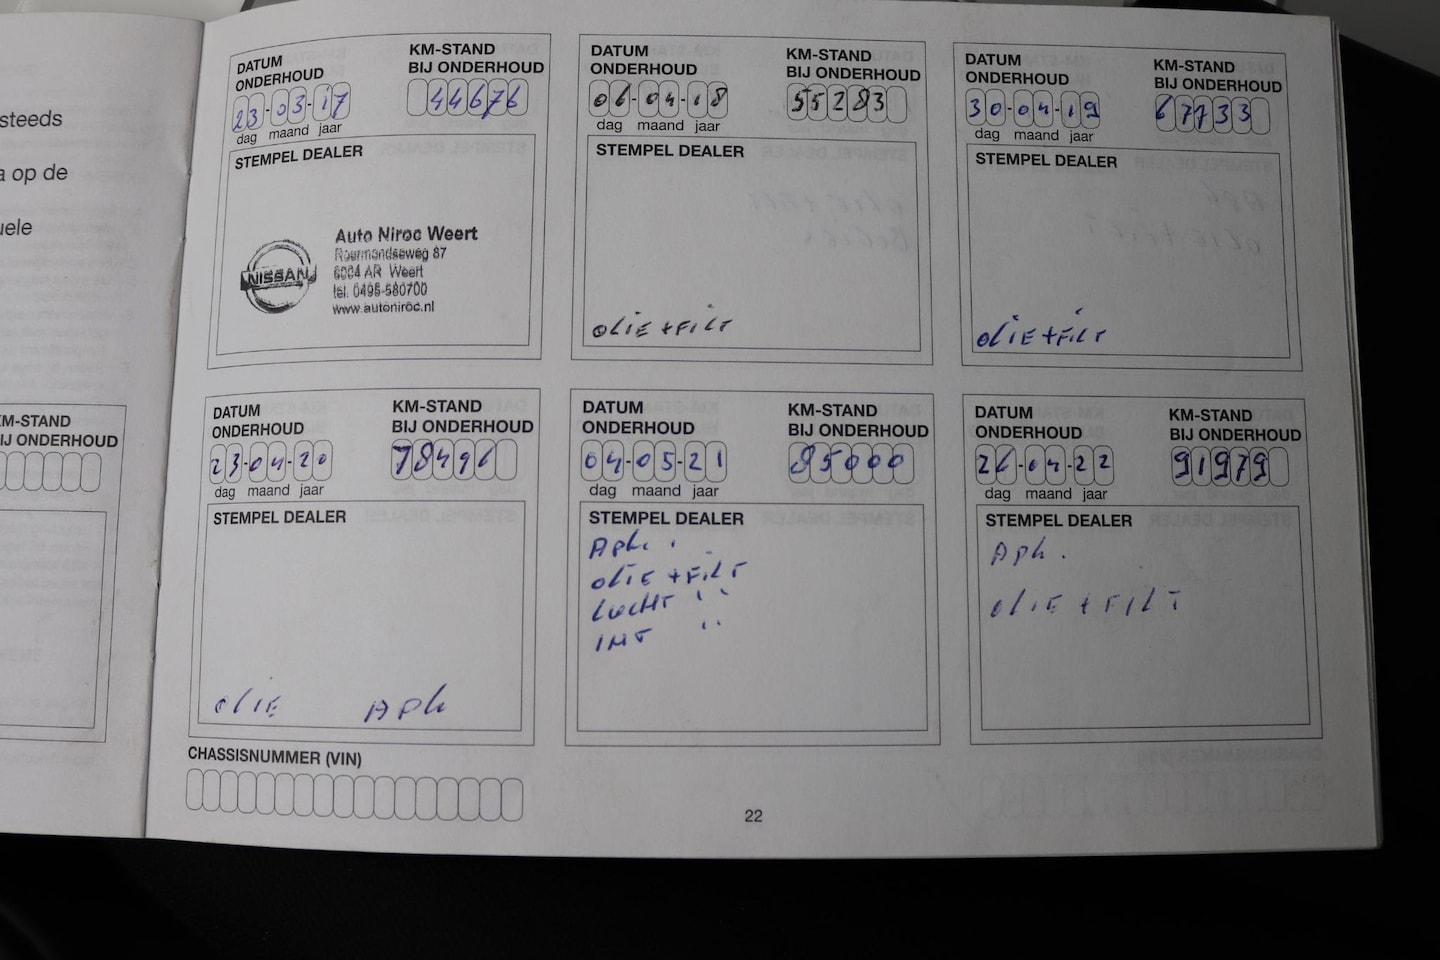 steeds
a op de
uele
KM-STAND
BIJ ONDERHOUD
DATUM
ONDERHOUD
23-03-17
dag maand jaar
KM-STAND
BIJ ONDERHOUD
44676
STEMPEL DEALER
NISSAN
Auto Niroc Weert
Roermondseweg 87
6004 AR Weert
tel. 0495-580700
www.autoniroc.nl
DATUM
ONDERHOUD
06-04-18
dag maand jaar
KM-STAND
BIJ ONDERHOUD
55283
STEMPEL DEALER
OLIE + FILT
DATUM
ONDERHOUD
30-04-19
dag maand jaar
KM-STAND
BIJ ONDERHOUD
67733
STEMPEL DEALER
OLIE + FILT
DATUM
ONDERHOUD
23-04-20
dag maand jaar
KM-STAND
BIJ ONDERHOUD
78496
STEMPEL DEALER
OLIE APK
DATUM
ONDERHOUD
04-05-21
dag maand jaar
KM-STAND
BIJ ONDERHOUD
85000
STEMPEL DEALER
APK.
OLIE + FILT
LUCHT ''
INT ''
DATUM
ONDERHOUD
26-04-22
dag maand jaar
KM-STAND
BIJ ONDERHOUD
91979
STEMPEL DEALER
APK.
OLIE + FILT
CHASSISNUMMER (VIN)
22